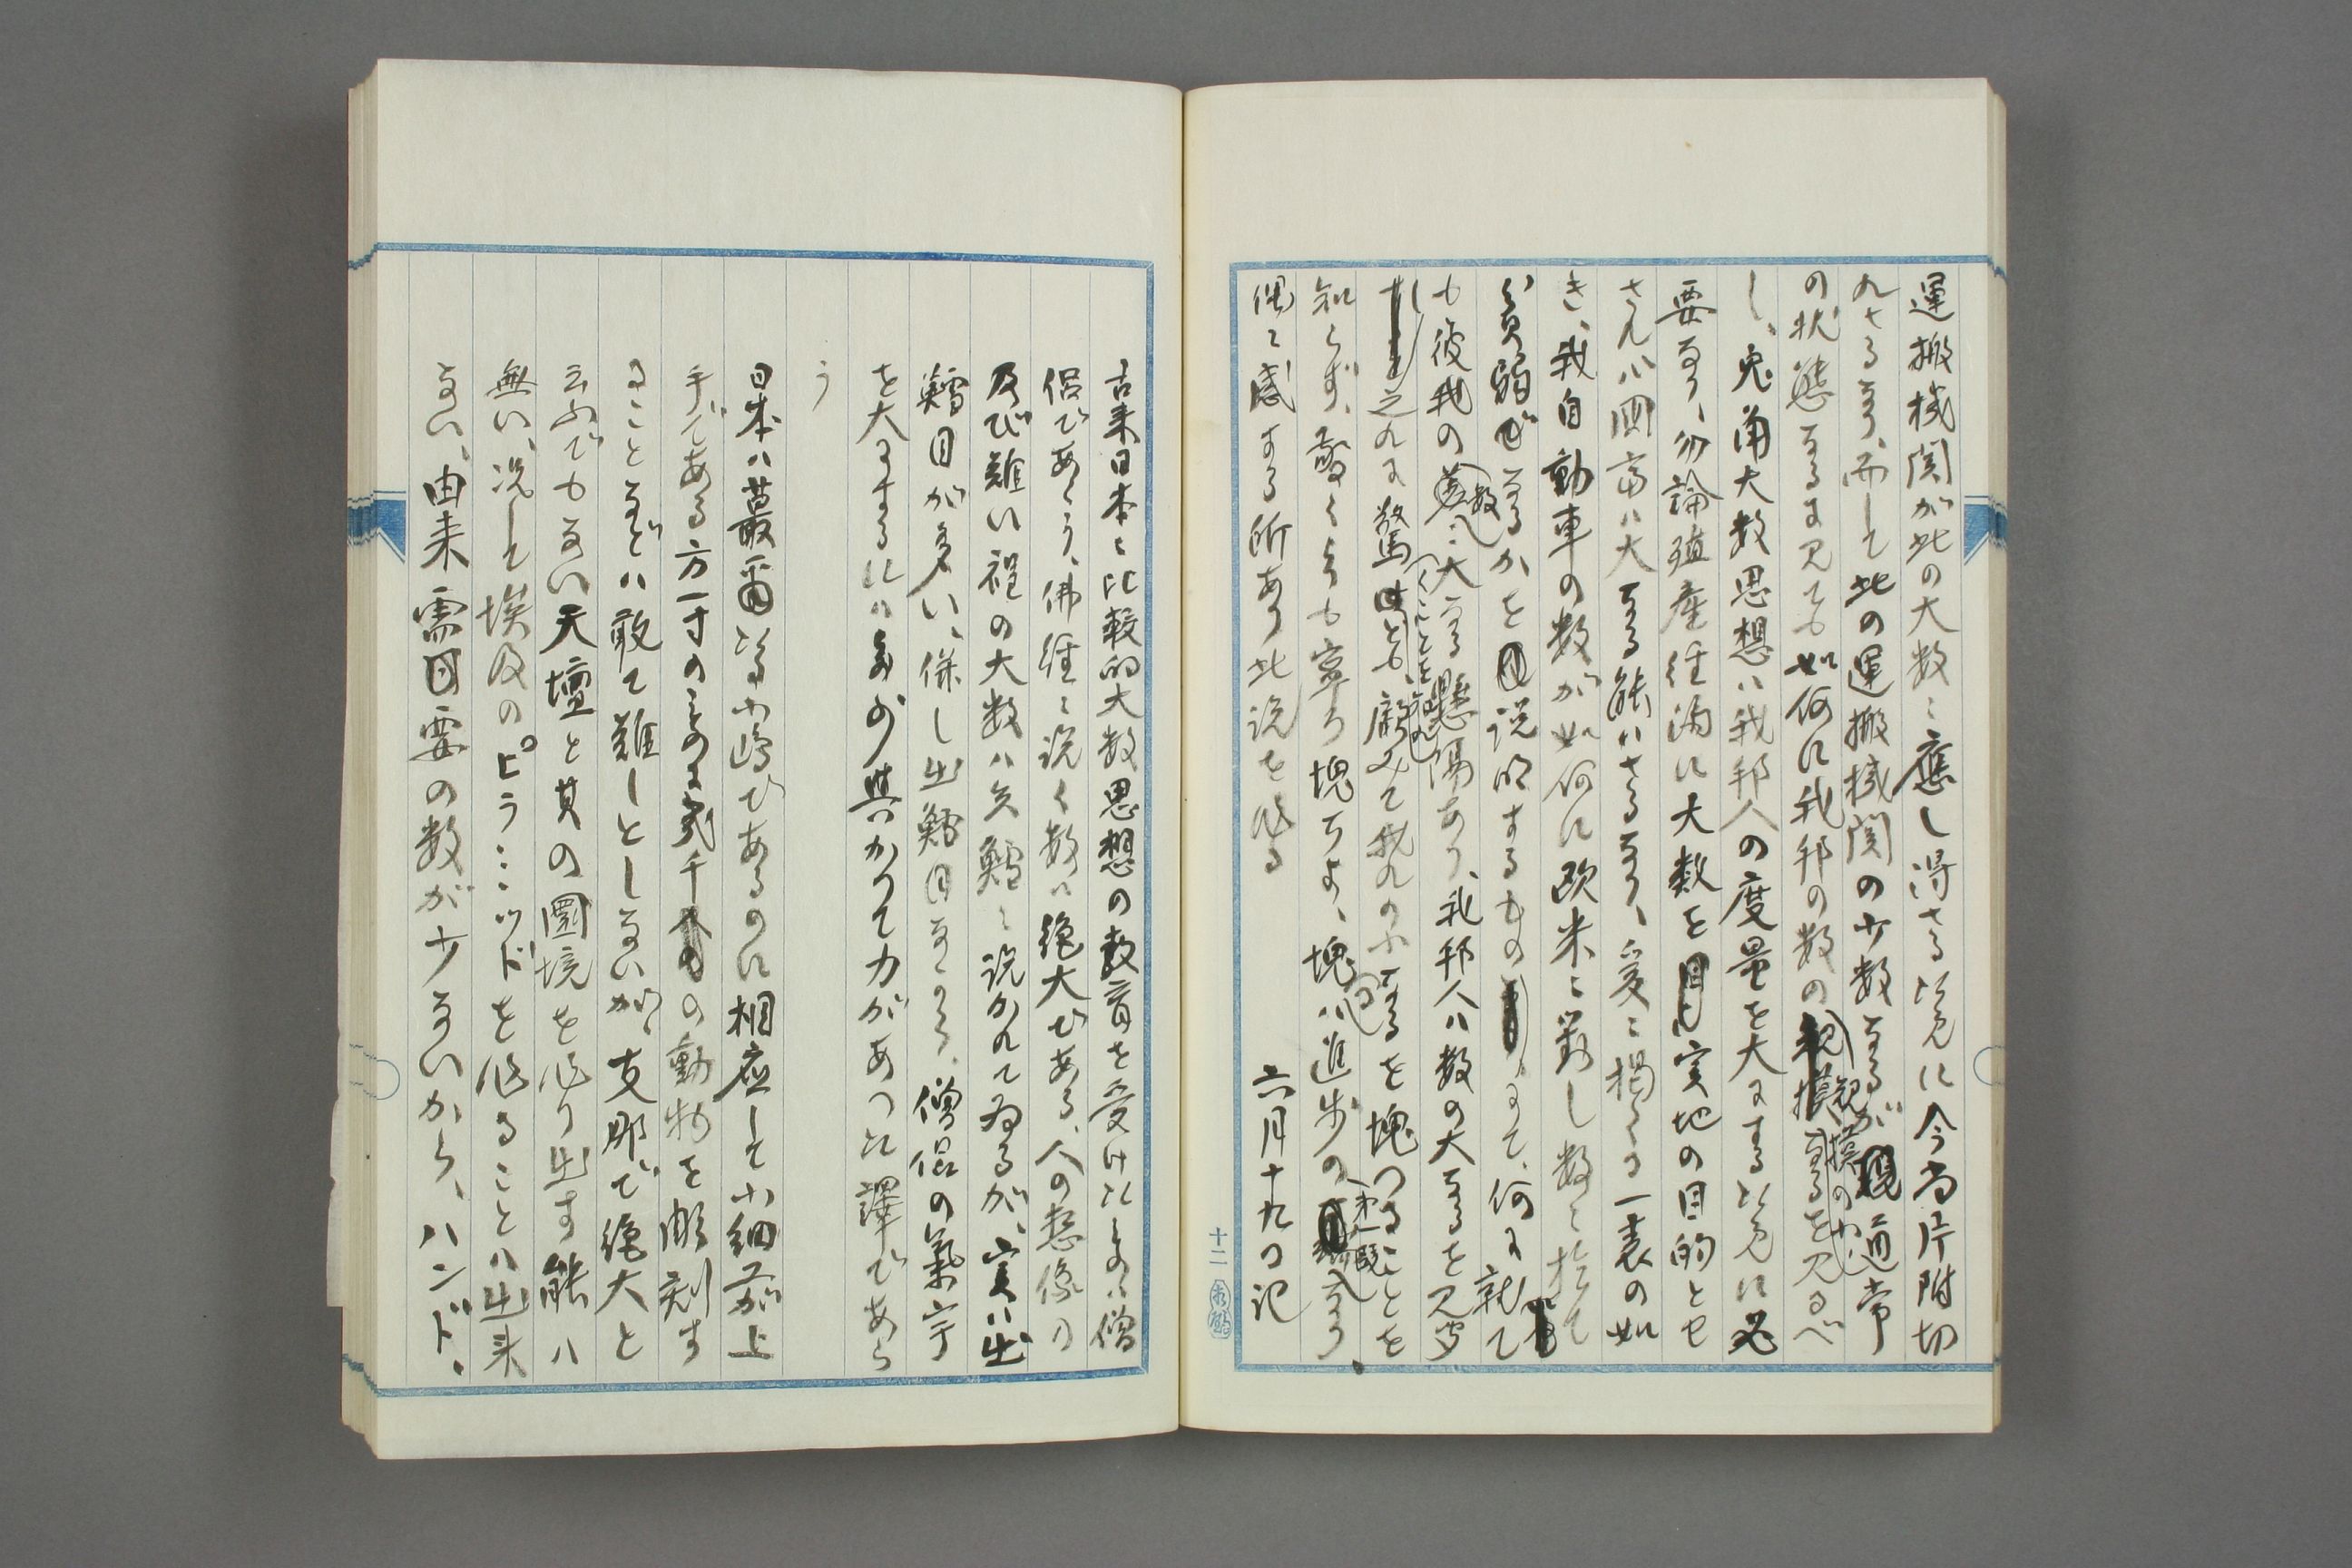 運搬機関が此の大数に應し得さる次第に今尚片附切
れさるなり、而して此の運搬機関の少数なるが通常
の状態なるに見ても如何に我邦の数の規模の小なるを見るべ
し、兎角大数思想ハ我邦人の度量を大にする次第に必
要なり、勿論殖産経済に大数を実地の目的とせ
さんハ国富ハ大なる能ハさるなり、爰に掲くる一表の如
き、我自動車の数が如何に欧米に対し数に於て
貧弱なるかを説明するものにて、何に就て
も彼我の数に大なる懸隔あり、我邦人ハ数の大なるを見
之れに驚くことを知れども、顧みて我れの小なるを愧つることを
知らず、驚くよりも寧ろ愧ぢよ、愧つるハ進歩の第一段なり、
偶々感する所あり此説を作る
六月十九日記
十二
古来日本に比較的大数思想の教育を受けたものハ僧
侶であらう、佛経に説く数ハ絶大である、人の想像の
及び難い程の大数ハ矢鱈に説かれてゐるが、実ハ出
鱈目が多い、併し出鱈目なりとも、僧侶の氣宇
を大にするにハ多少與かりて力があつた譯であら
う
日本ハ蕞爾たる小嶋であるのに相應して小細工が上
手である方一寸のものに幾千の動物を彫刻す
ることなどハ敢て難しとしないが、支那で絶大と
云ふでもない天壇と其の圜境を作り出す能ハ
無い、况して埃及のピラミッドを作ることハ出来
ない、由来需要の数が少ないから、ハンド、